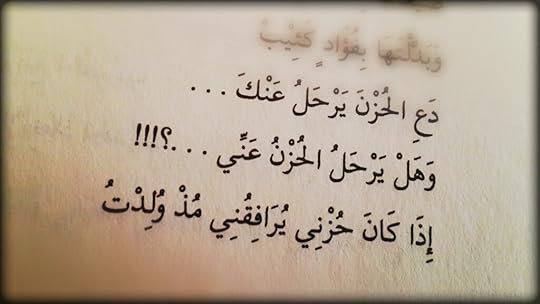 وَبَدَّلْتَهَا بِفُؤَادٍ كَئِيْبْ
دَعِ الحُزْنَ يَرْحَلُ عَنْكَ ...
وَهَلْ يَرْحَلُ الحُزْنُ عَنِّي ...؟!!!
إِذَا كَانَ حُزْنِي يُرَافِقُنِي مُذْ وُلِدْتُ